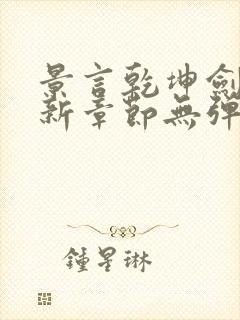 景言乾坤劍
新章節無彈
鍾星琳